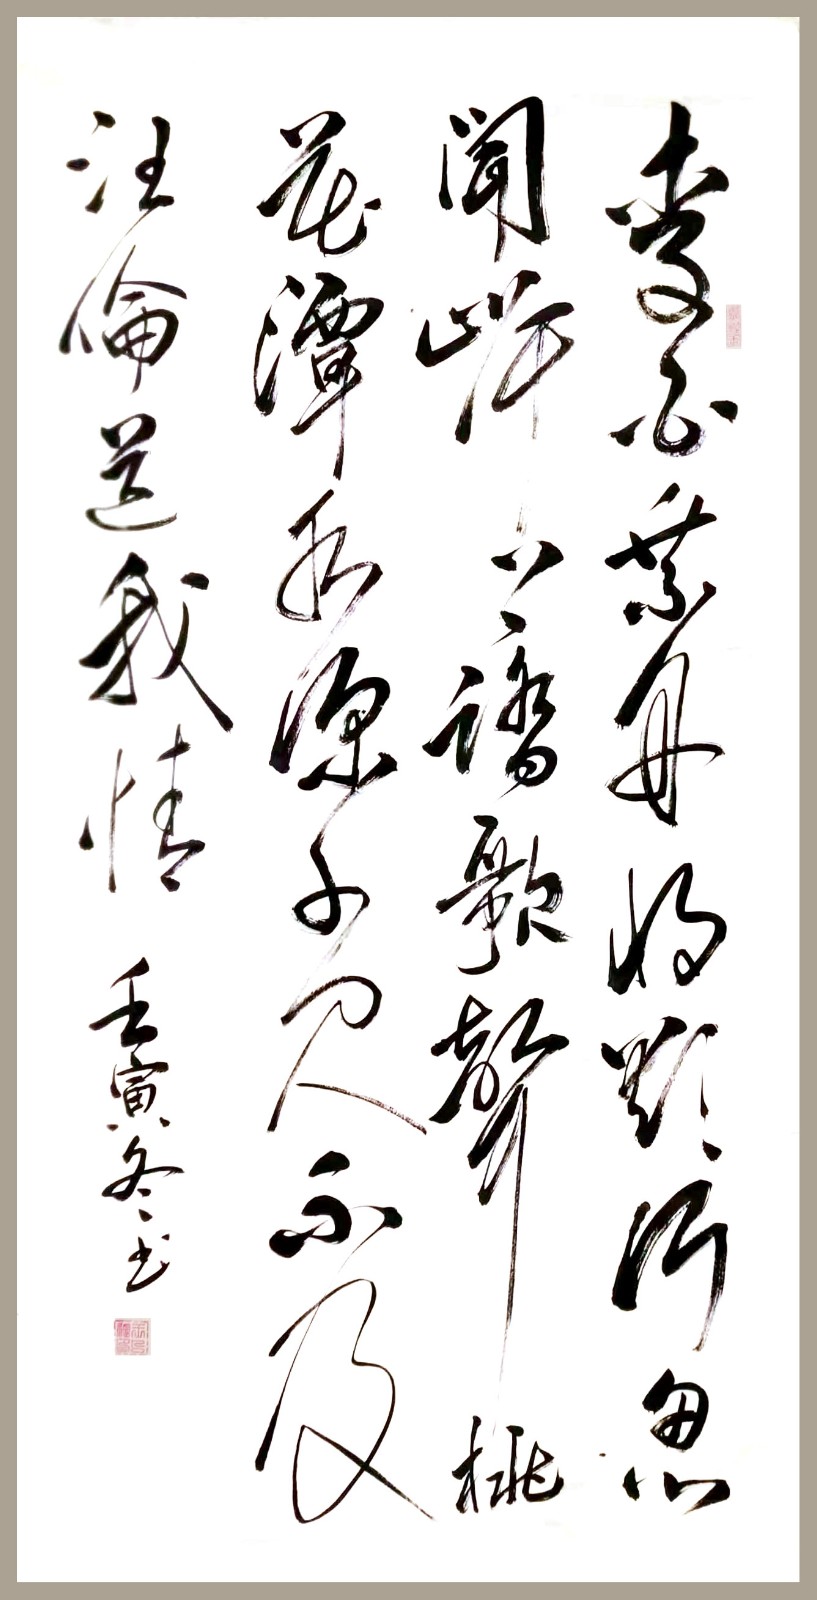 李白乘舟将欲行忽
聞岸上踏歌聲桃
花潭水深千尺不及
汪倫送我情 壬寅冬书